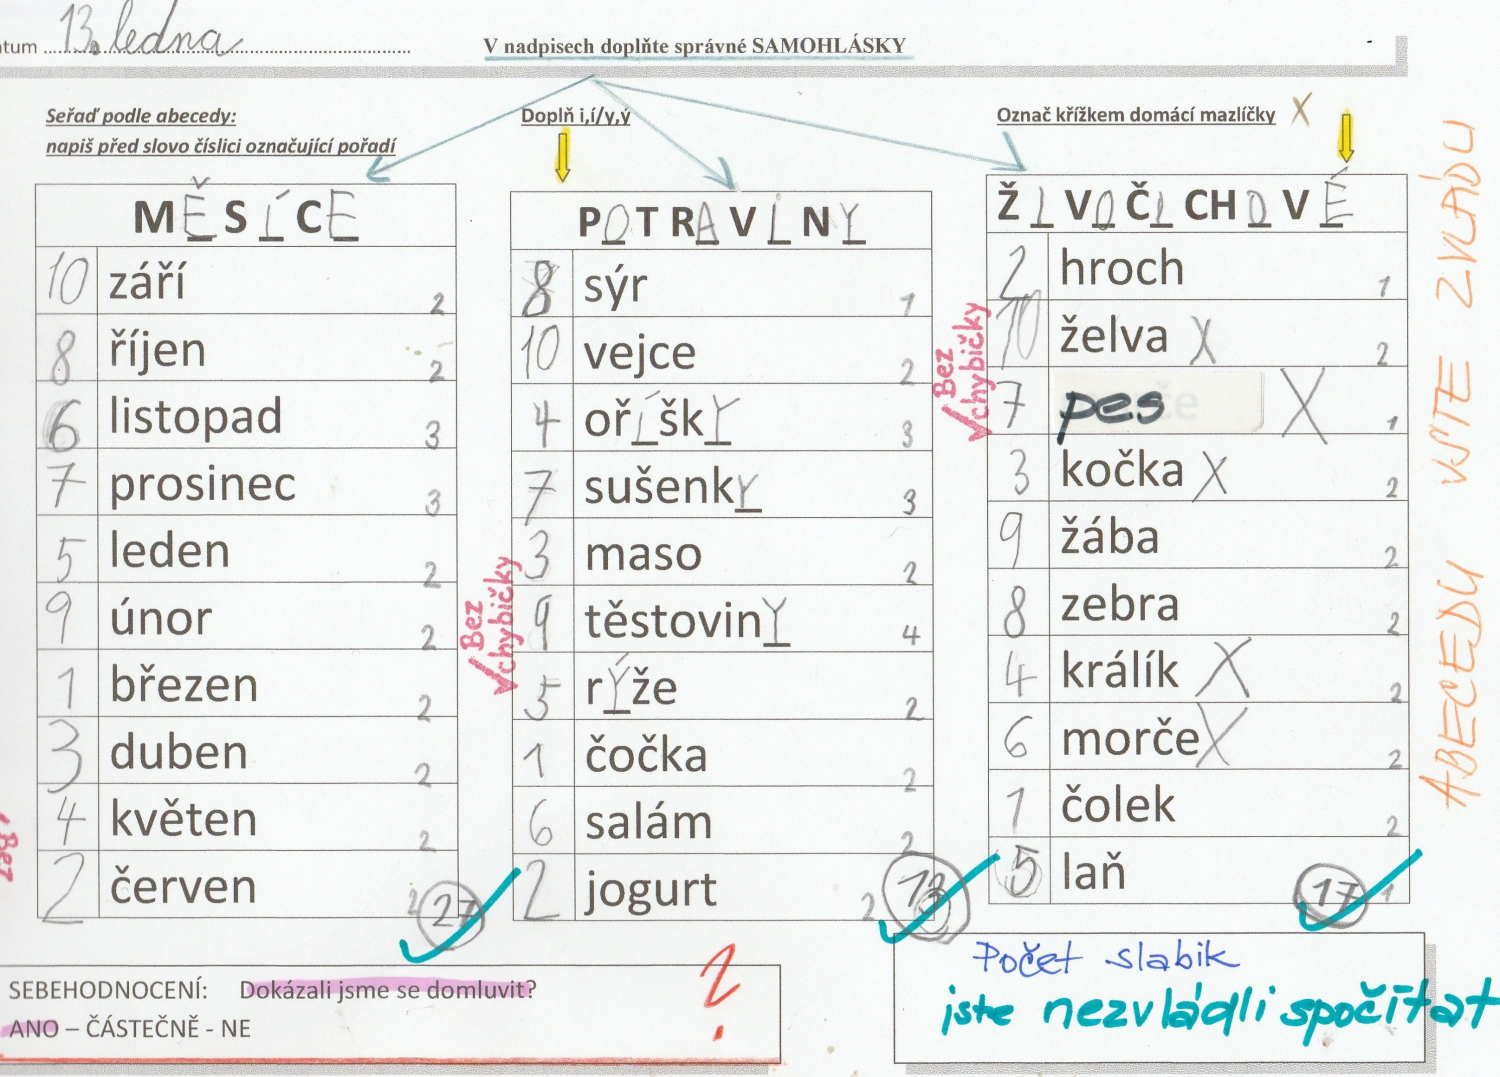 atum 13. ledna
V nadpisech doplňte správné SAMOHLÁSKY
Seřaď podle abecedy:
napiš před slovo číslici označující pořadí
Doplň i,í/y,ý
Označ křížkem domácí mazlíčky X
MĚSÍCE
10 září 2
8 říjen 2
6 listopad 3
7 prosinec 3
5 leden 2
9 únor 2
1 březen 2
3 duben 2
4 květen 2
2 červen 2
27
POTRAVINY
8 sýr 1
10 vejce 2
4 oříšky 3
7 sušenky 3
3 maso 2
9 těstoviny 4
5 rýže 2
1 čočka 2
6 salám 2
2 jogurt 2
ŽIVOČICHOVÉ
2 hroch 1
10 želva X 2
7 pes X 1
3 kočka X 2
9 žába 2
8 zebra 2
4 králík X 2
6 morče X 2
1 čolek 2
5 laň 1
17
Bez
chybičky
Bez
chybičky
Bez
ABECEDU JSTE ZVLÁDLI
SEBEHODNOCENÍ: Dokázali jsme se domluvit?
ANO – ČÁSTEČNĚ - NE
?
Počet slabik
jste nezvládli spočítat